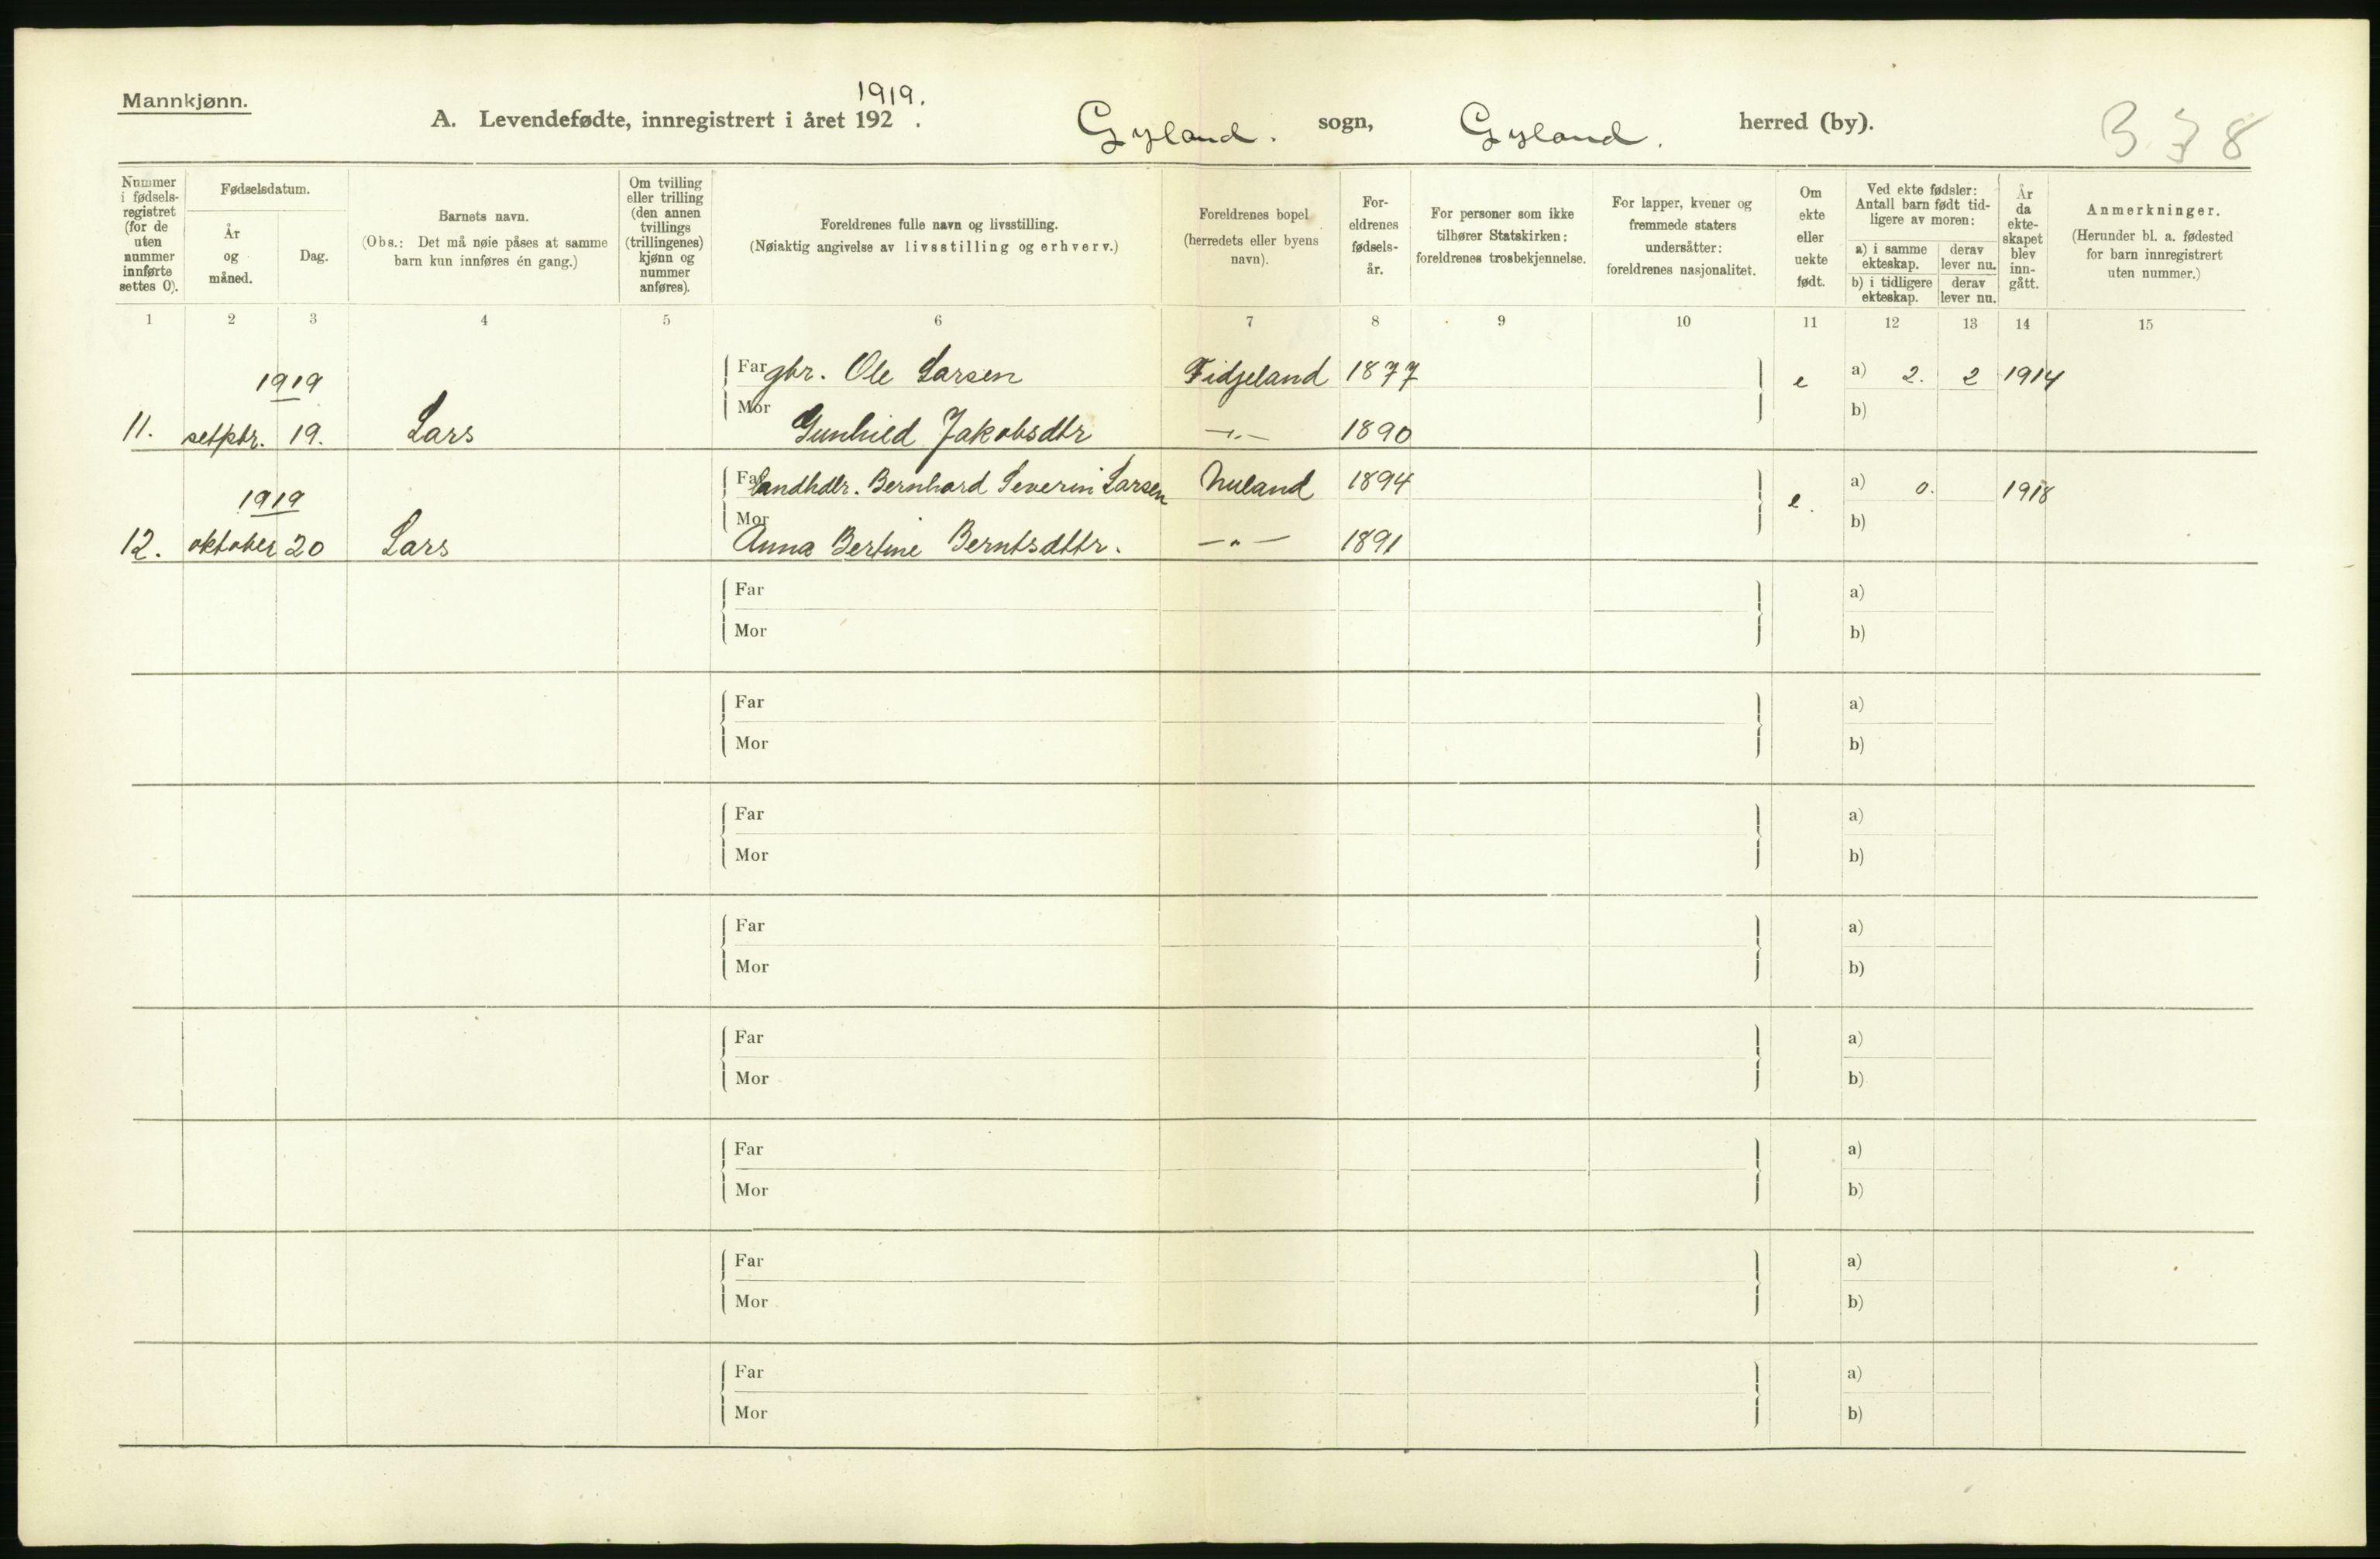 Mannkjønn.
1919.
A. Levendefødte, innregistrert i året 192 . Gyland. sogn, Gyland. herred (by). 338
Nummer i fødsels-registret (for de uten nummer innførte settes 0).
Fødselsdatum.
År og måned.
Dag.
Barnets navn.
(Obs.: Det må nøie påses at samme barn kun innføres én gang.)
Om tvilling eller trilling (den annen tvillings (trillingenes) kjønn og nummer anføres).
Foreldrenes fulle navn og livsstilling.
(Nøiaktig angivelse av livsstilling og erhverv.)
Foreldrenes bopel
(herredets eller byens navn).
For-eldrenes fødsels-år.
For personer som ikke tilhører Statskirken: foreldrenes trosbekjennelse.
For lapper, kvener og fremmede staters undersåtter: foreldrenes nasjonalitet.
Om ekte eller uekte født.
Ved ekte fødsler: Antall barn født tid-ligere av moren:
a) i samme ekteskap.
derav lever nu.
b) i tidligere ekteskap.
derav lever nu.
År da ekte-skapet blev inn-gått.
Anmerkninger.
(Herunder bl. a. fødested for barn innregistrert uten nummer.)
1 2 3 4 5 6 7 8 9 10 11 12 13 14 15
1919 Far gbr. Ole Larsen Fidjeland 1877 e a) 2. 2 1914
11. setptr. 19. Lars Mor Gunhild Jakobsdtr —„— 1890 b)
1919 Far landhdlr. Bernhard Severin Larsen Nuland 1894 e. a) 0. 1918
12. oktober 20 Lars Mor Anna Bertine Berntsdttr. —„— 1891 b)
Far a)
Mor b)
Far a)
Mor b)
Far a)
Mor b)
Far a)
Mor b)
Far a)
Mor b)
Far a)
Mor b)
Far a)
Mor b)
Far a)
Mor b)